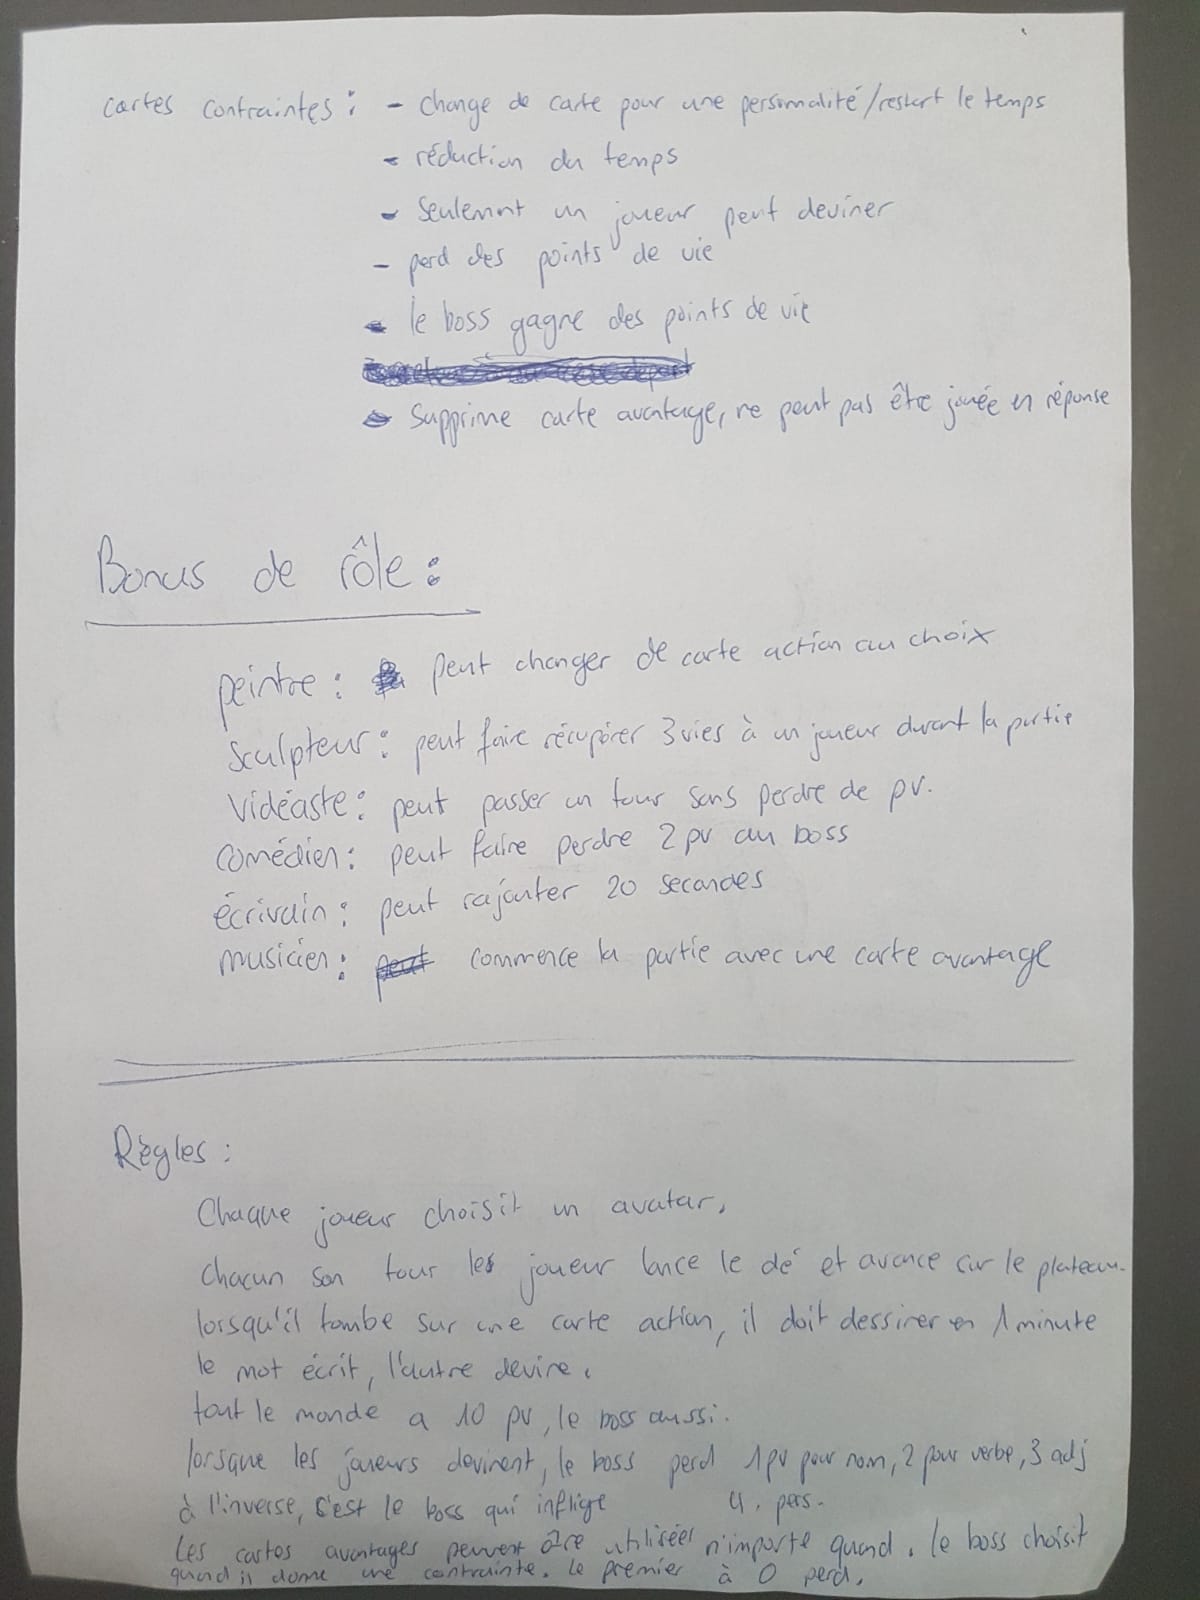 cartes contraintes : - change de carte pour une personnalité/restart le temps
- réduction du temps
- Seulement un joueur peut deviner
- perd des points de vie
- le boss gagne des points de vie
- Supprime carte avantage, ne peut pas être jouée en réponse
Bonus de rôle :
peintre : peut changer de carte action au choix
Sculpteur : peut faire récupérer 3 vies à un joueur durant la partie
Vidéaste : peut passer un tour sans perdre de pv.
Comédien : peut faire perdre 2 pv au boss
écrivain : peut rajouter 20 secondes
musicien : peut commence la partie avec une carte avantage
Règles :
Chaque joueur choisit un avatar.
Chacun son tour les joueur lance le dé et avance sur le plateau.
lorsqu'il tombe sur une carte action, il doit dessiner en 1 minute
le mot écrit, l'autre devine.
tout le monde a 10 pv, le boss aussi.
lorsque les joueurs devinent, le boss perd 1pv pour nom, 2 pour verbe, 3 adj
à l'inverse, c'est le boss qui inflige 4. pers.
Les cartes avantages peuvent être utilisées n'importe quand. le boss choisit
quand il donne une contrainte. Le premier à 0 perd.